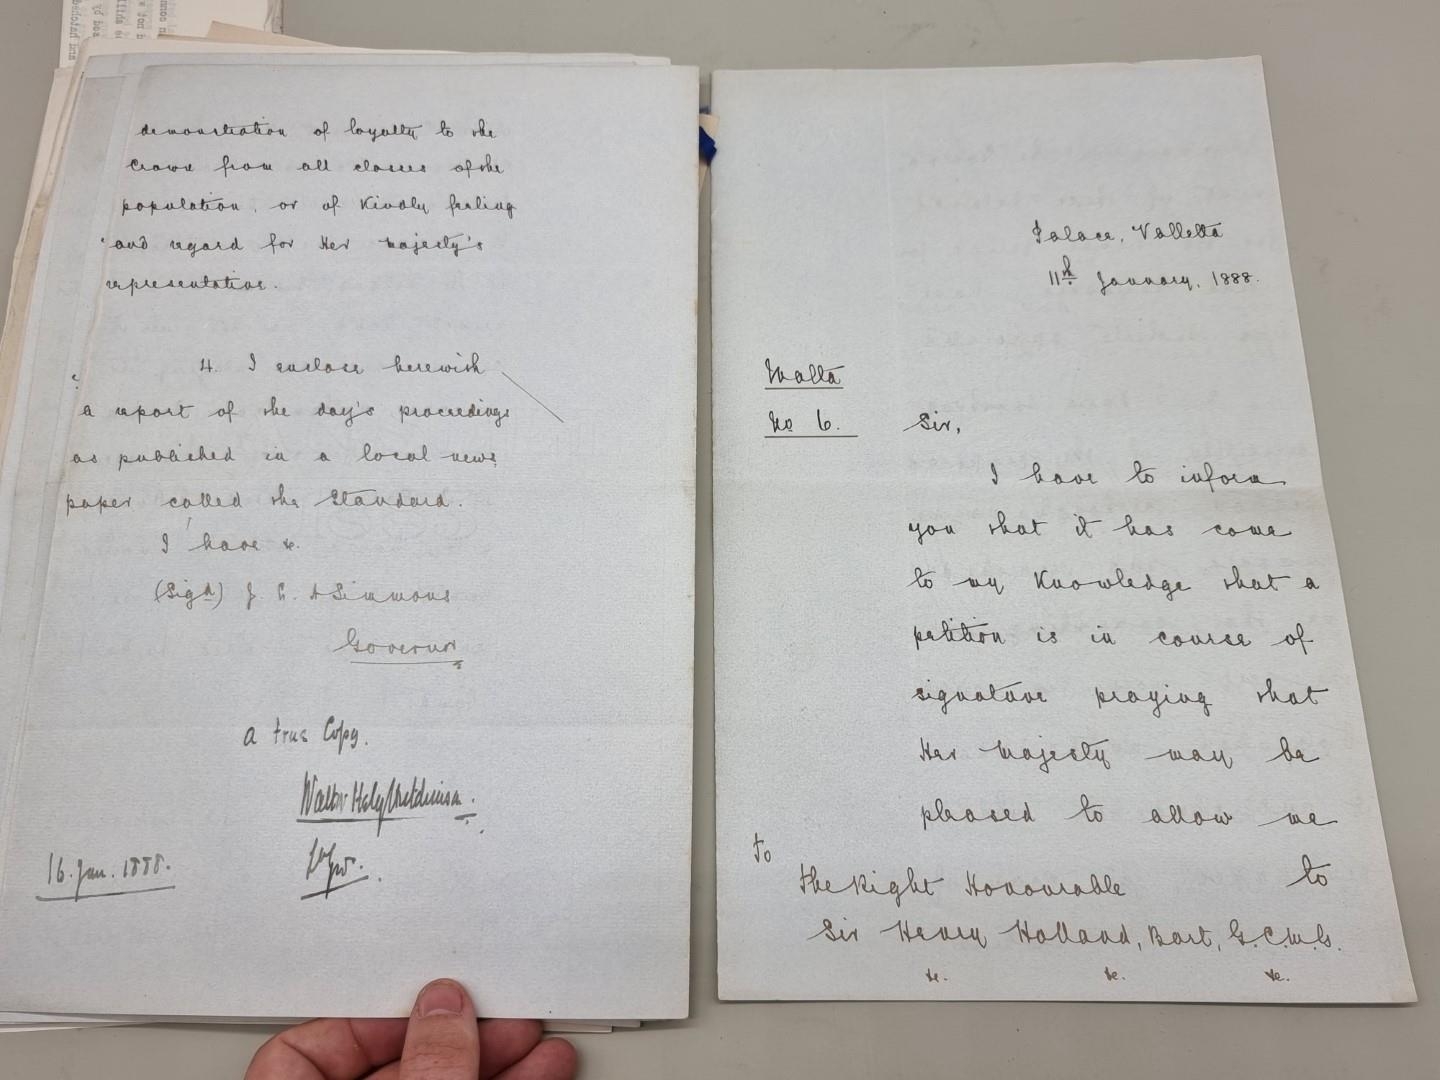 demonstration of loyalty to the
Crown from all classes of the
population, or of Kindly feeling
and regard for Her Majesty's
representative.
4. I enclose herewith
a report of the day's proceedings
as published in a local news
paper called the Standard.
I have &c.
(Sigd) J. L. A Simmons
Governor
a true Copy.
Walter Hely Hutchinson.
16. Jan. 1888.
Palace, Valletta
11th January, 1888.
Malta
No 6.
Sir,
I have to inform
you that it has come
to my Knowledge that a
petition is in course of
signature praying that
Her Majesty may be
pleased to allow me
to
To
The Right Honourable
Sir Henry Holland, Bart, G.C.M.G.
&c. &c. &c.